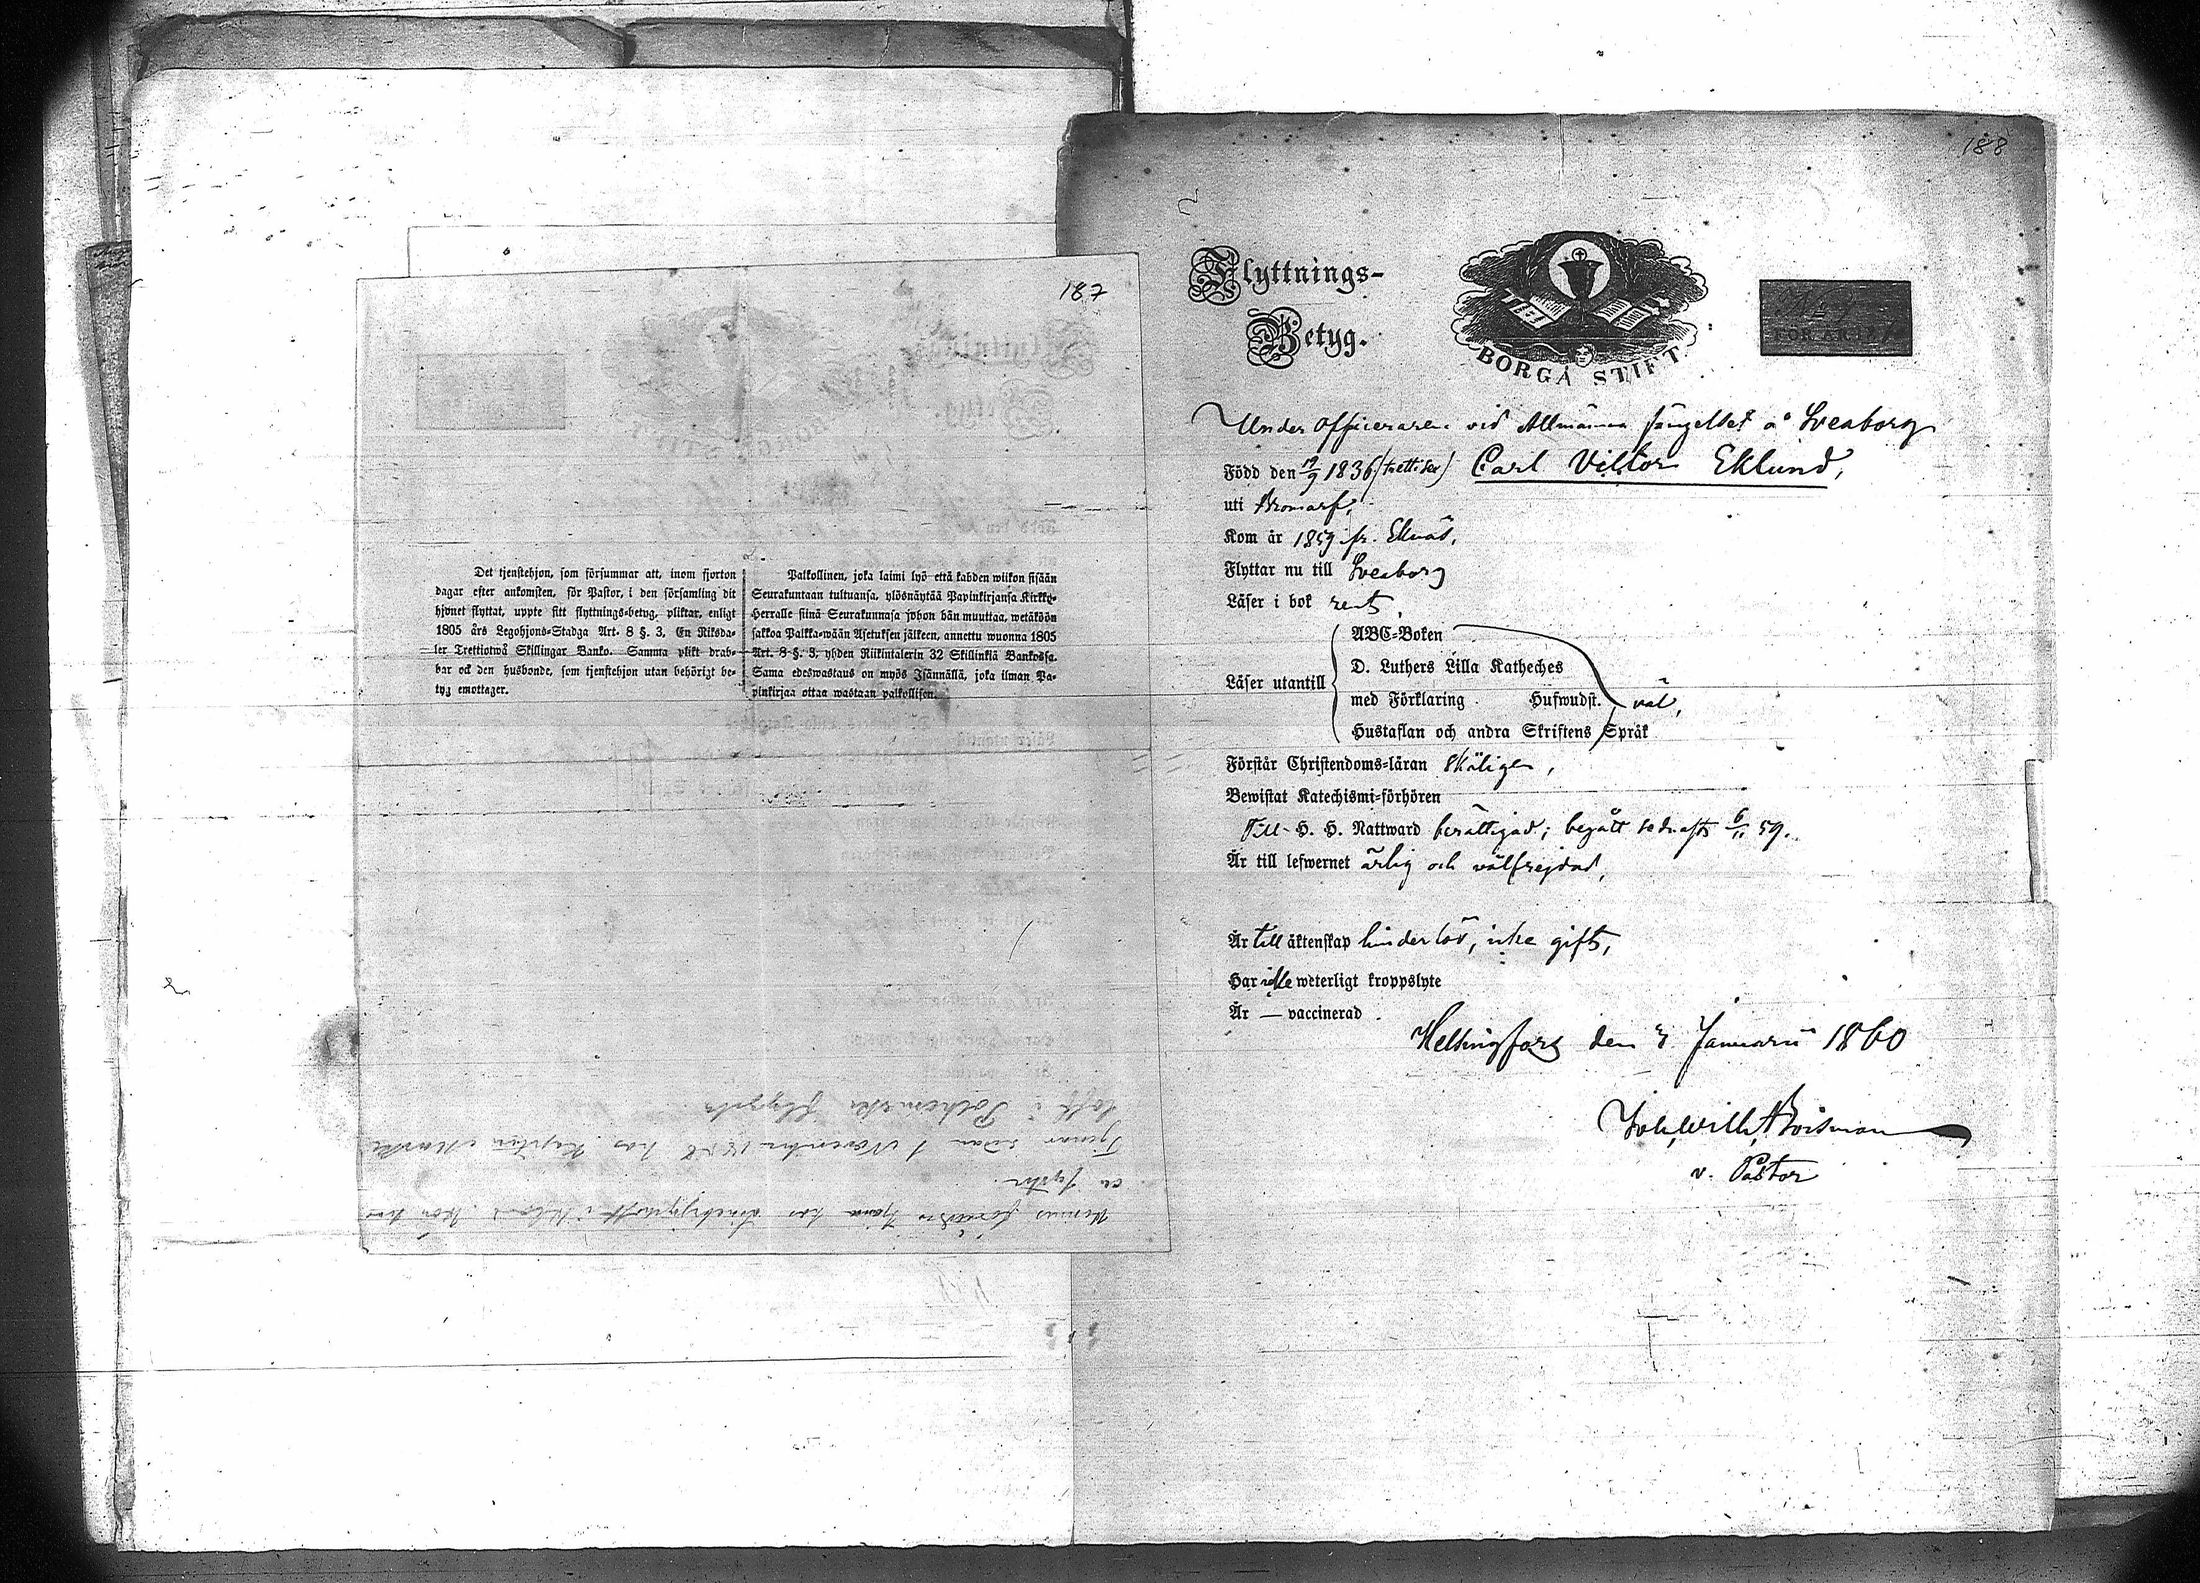 187
Det tjenstehjon, som försummar att, inom fjorton
dagar efter ankomsten, för Pastor, i den församling dit
hjonet flyttat, uppte sitt flyttnings-betyg, pliktar, enligt
1805 års Legohjons-Stadga Art. 8 §. 3, En Riksda-
ler Trettiotwå Skillingar Banko. Samma plikt drab-
bar ock den husbonde, som tjenstehjon utan behörigt be-
tyg emottager.
Palkollinen, joka laimi lyö että kahden wiikon sisään
Seurakuntaan tultuansa, ylösnäytää Papinkirjansa Kirkko-
Herralle siinä Seurakunnasa johon hän muuttaa, wetäköön
sakkoa Palkka-wään Asetuksen jälkeen, annettu wuonna 1805
Art. 8 §. 3, yhden Riikintalerin 32 Skillinkiä Bankossa.
Sama edeswastaus on myös Isännällä, joka ilman Pa-
pinkirjaa ottaa wastaan palkollisen.
188
Flyttnings-
Betyg.
BORGÅ STIFT.
Under officeraren vid Allmänna fängelset å Sveaborg
Född den 19/9 1836 (trettisex) Carl Viktor Eklund,
uti Bromarf,
Kom år 1859 fr. Eknäs,
Flyttar nu till Sveaborg
Läser i bok rent,
ABC-Boken
D. Luthers Lilla Katheches
Läser utantill med Förklaring Hufwudst. väl,
Hustaflan och andra Skriftens Språk
Förstår Christendoms-läran skäligen,
Bewistat Katechismi-förhören
Till H. H. Nattward berättigad; begått sednast 6/11 59.
Är till lefwernet ärlig och välfrejdad,
Är till äktenskap hinderlös, icke gift,
Har icke weterligt kroppslyte
Är — vaccinerad
Helsingfors den 3 Januarii 1860
Joh. Wilh.
v. Pastor